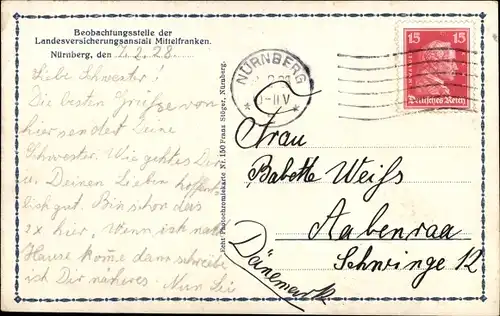 Beobachtungsstelle der
Landesversicherungsanstalt Mittelfranken.
Nürnberg, den 7.2.28.
Liebe Schwester!
Die besten Grüsse von
hier sendet Deine
Schwester. Wie geht es Dir
u. Deinen Lieben hoffent
lich gut. Bin schon das
2x hier. Wenn ich nach
Hause kom̅e dann schreibe
ich Dir näheres. Nun sei
Echt Photochromiekarte Nr. 150 Franz Stöger, Nürnberg.
NÜRNBERG
-11 V
15 15
Deutsches Reich
Frau
Babette Weiss
Aabenraa
Schwinge 12
Dänemark